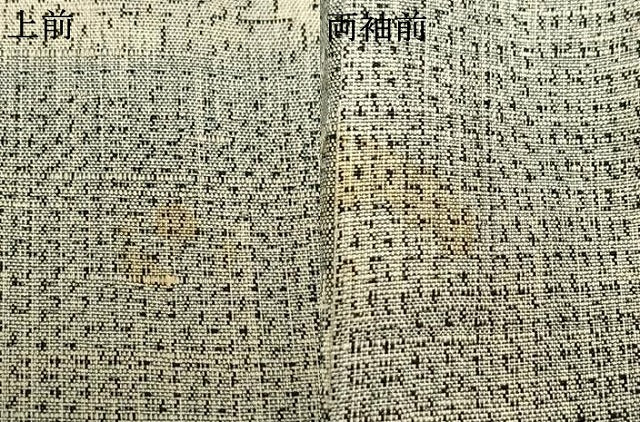 上前
両袖前